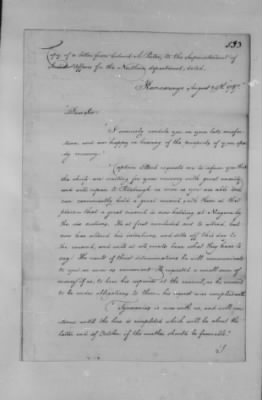 533
Copy of a letter from Colonel A. Porter, to the Superintendent of
Indian Affairs for the Northern department, dated
August 24th 1787
Dear Sir
I sincerely condole you on your late
and are happy in hearing of the prospects of your
recovery.
Captain requests me to inform you that
the chiefs are waiting for your recovery with great anxiety
and will repair to Pittsburgh as soon as you are able and
can conveniently hold a grand council with them at that
place: that a great council is now holding at Niagara by the
six nations. He at first concluded not to attend, but
now has altered his intentions, and setts off this day to
the council, and will at all events hear what they have to
say. The result of their determinations he will communicate
to you as soon as convenient. He requested a small sum of
money of us, to bear his expenses at the council, as he wanted
to be under obligations to them his request was complied with
is now with us, and will
continue until the line is compleated which will be about the
latter end of October if the weather should be favorable.
I